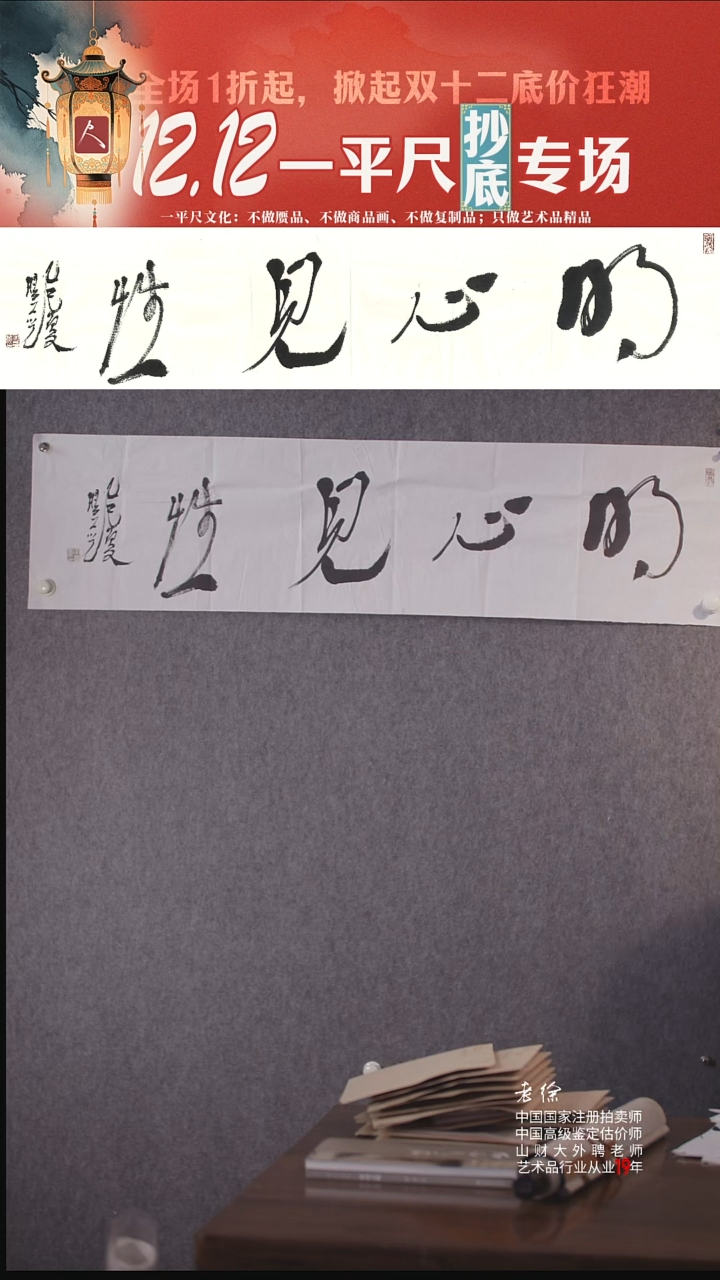 全场1折起，掀起双十二底价狂潮
12.12一平尺抄底专场
一平尺文化：不做赝品、不做商品画、不做复制品；只做艺术品精品
明心见性
乙巳夏
明心见性
乙巳夏
老徐
中国国家注册拍卖师
中国高级鉴定估价师
山财大外聘老师
艺术品行业从业19年